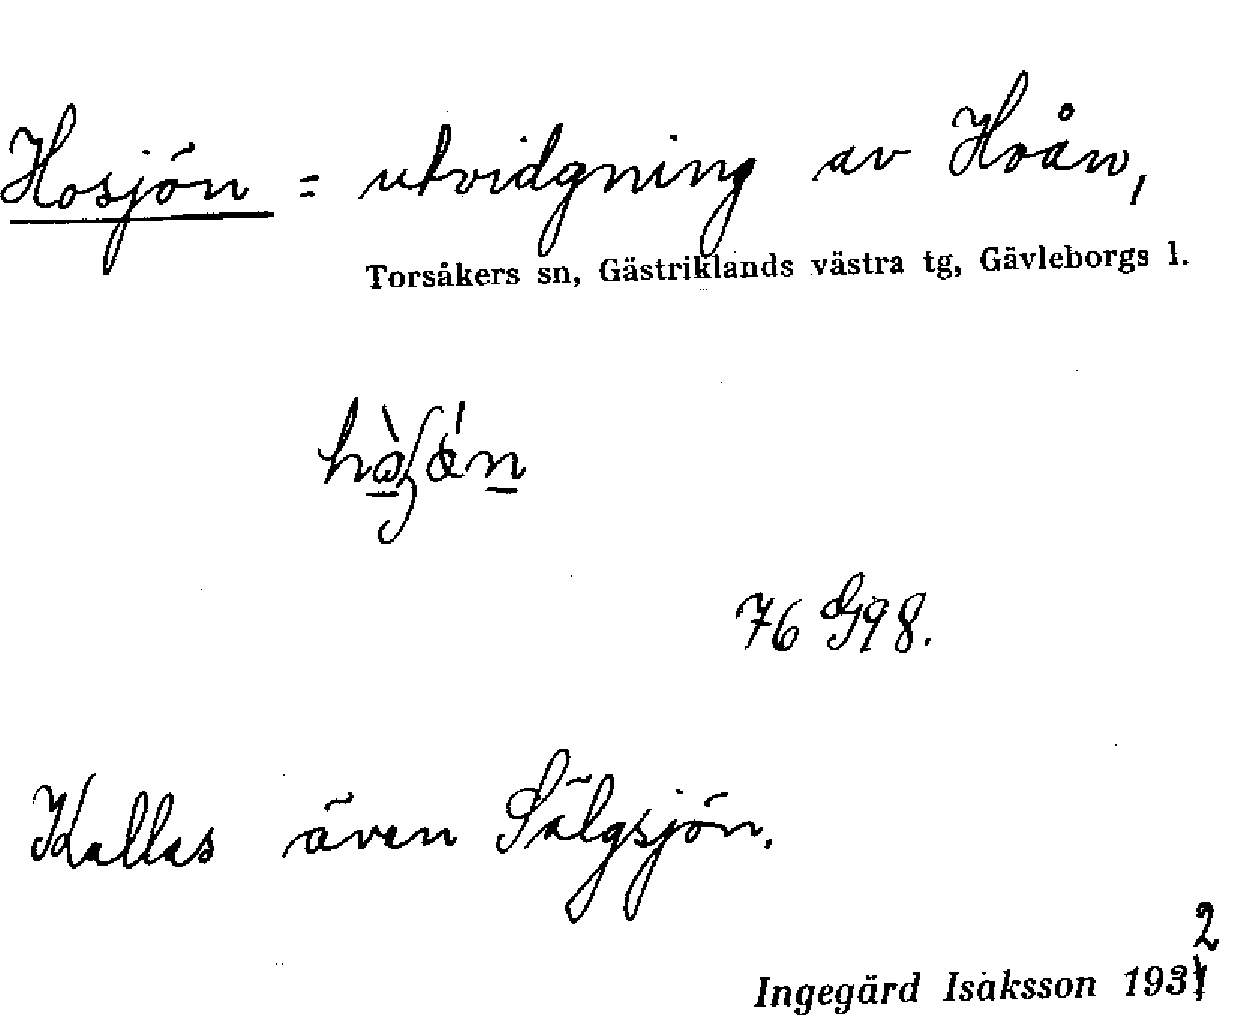 Hosjön = utvidgning av Hoån,
Torsåkers sn, Gästriklands västra tg, Gävleborgs l.
76 G98.
Kallas även Sälgsjön.
Ingegärd Isaksson 1932